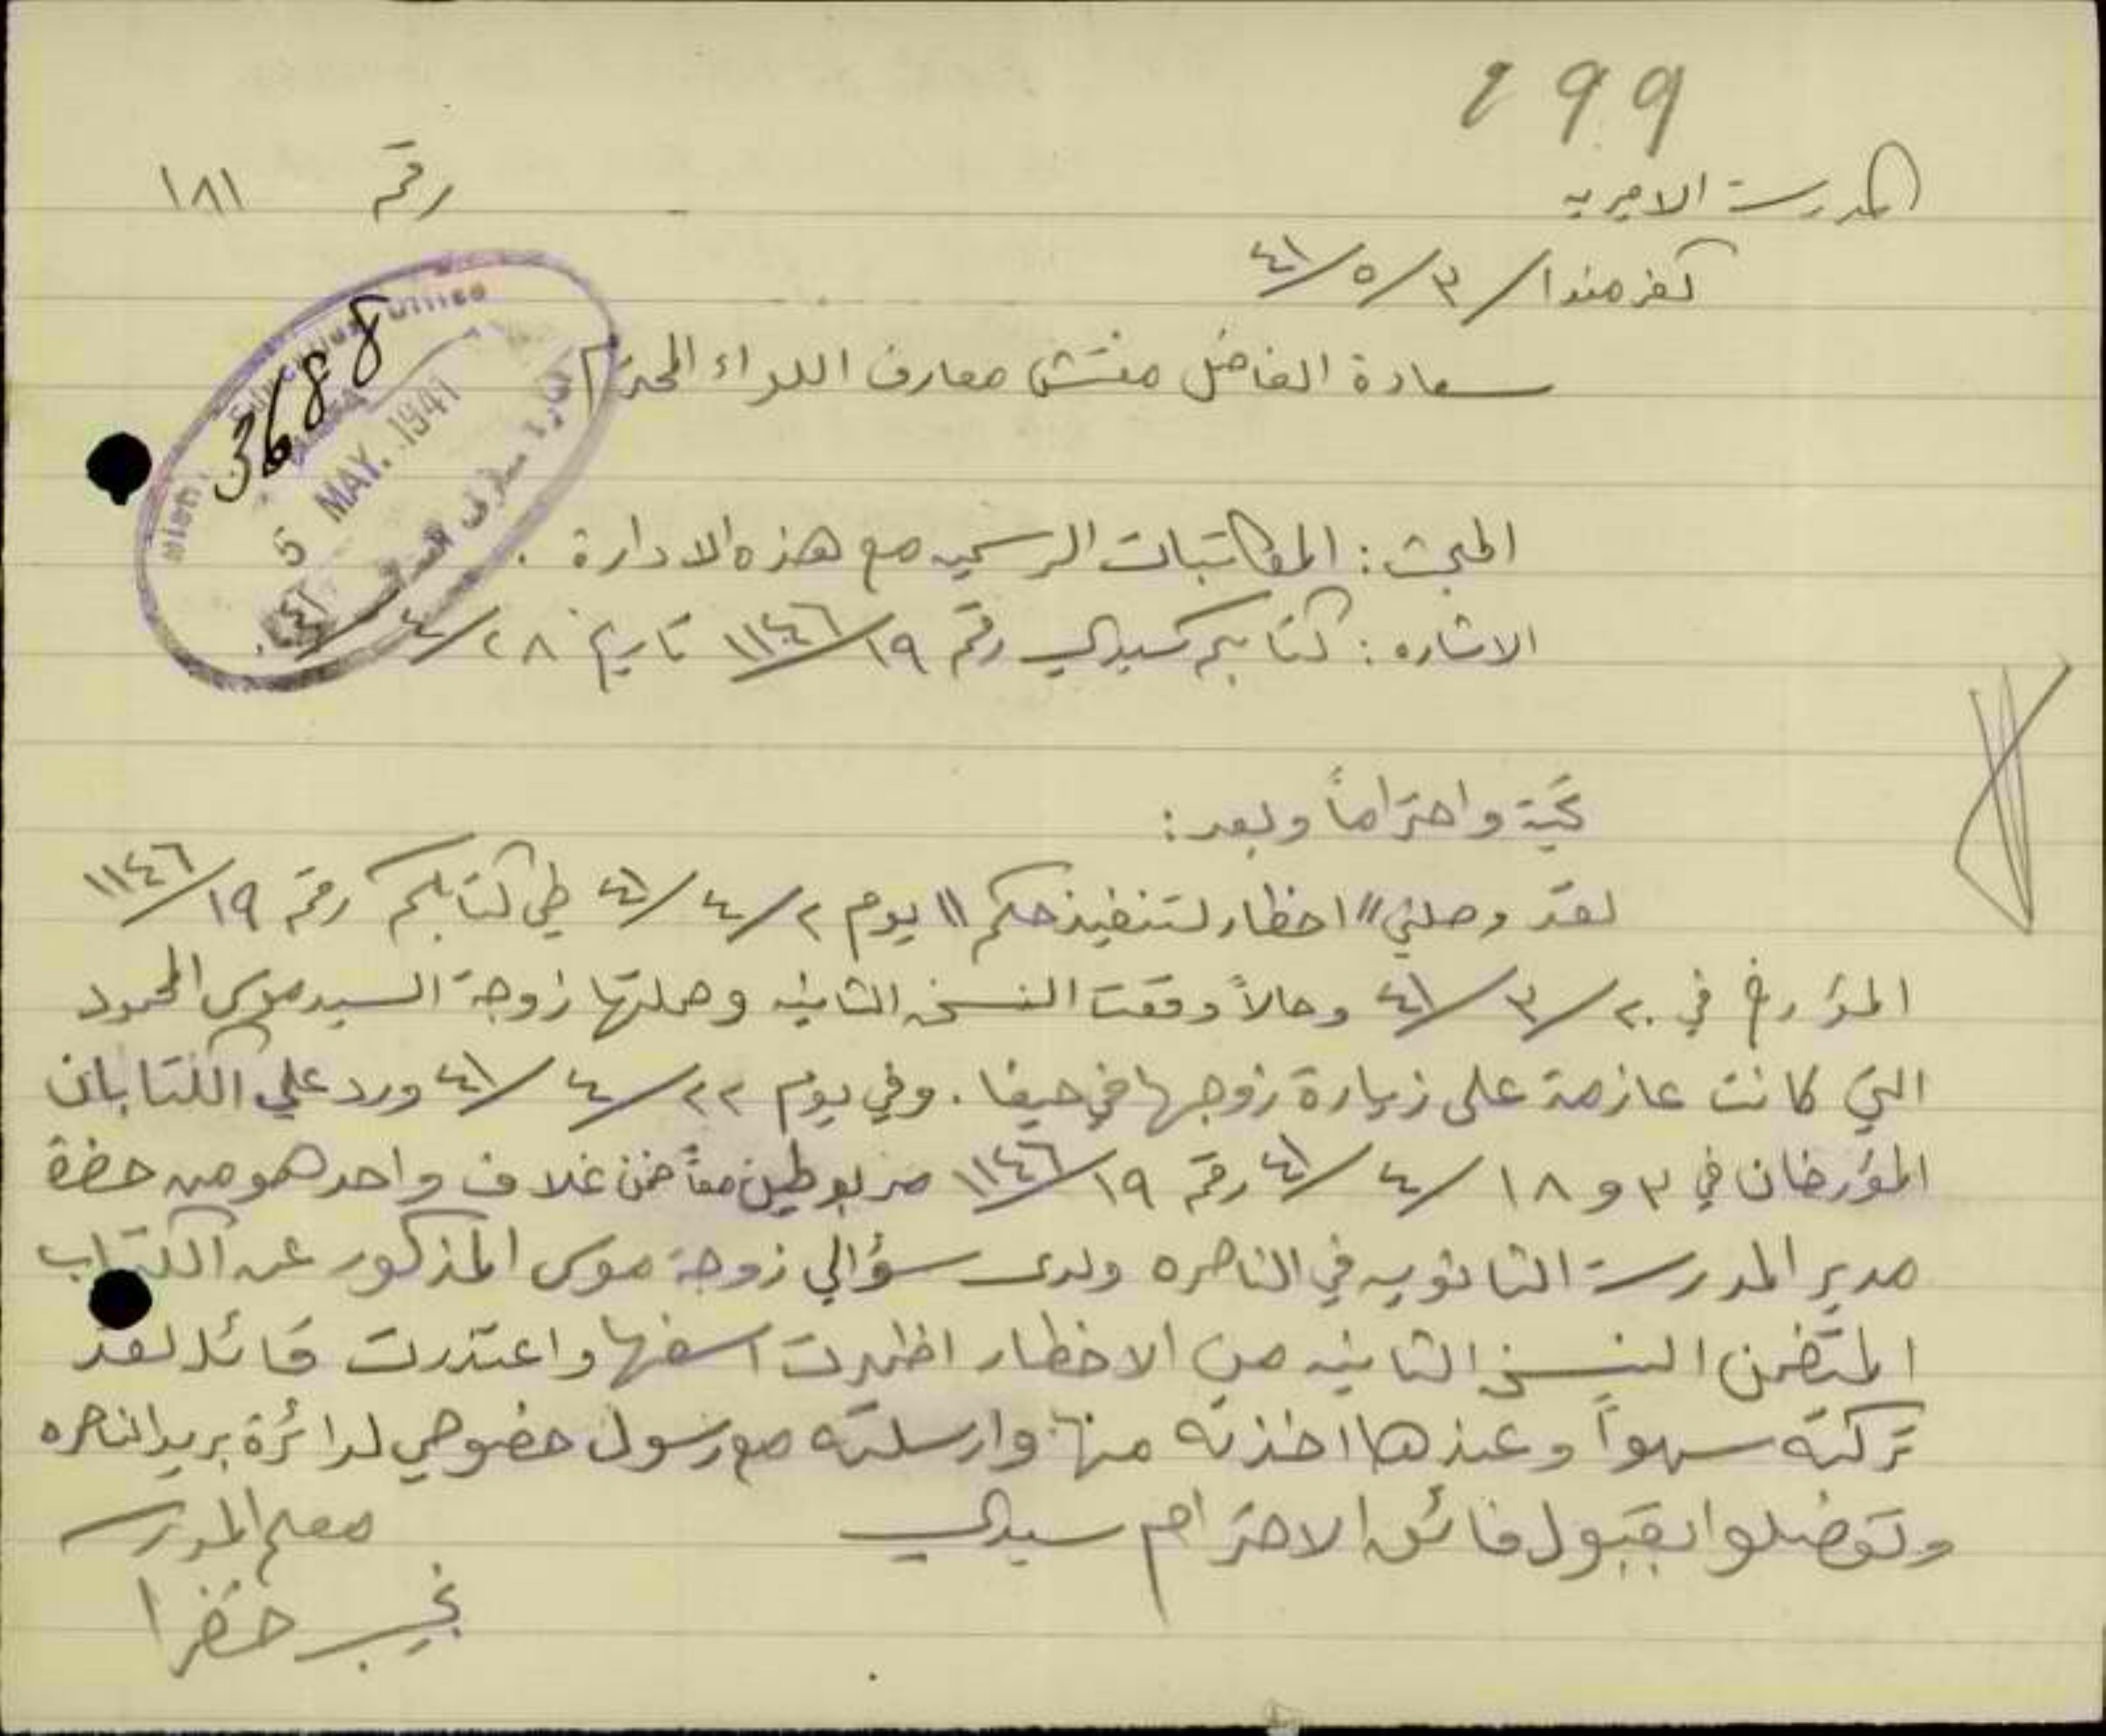 299
المدرسة الاميريه
رقم ١٨١
كفرمندا / ٣ / ٥ / ٤١
سعادة الفاضل مفتش معارف اللواء المحترم
3688
Education Office
5 MAY. 1941
المبحث : المكاتبات الرسميه مع هذه الادارة .
الاشاره : كتابكم سيدي رقم ١٩/١١٤٦ تاريخ ٢٨/٤/٤١.
تحية واحتراماً وبعد :
لقد وصلني "اخطار لتنفيذ حكم" يوم ٢/٤/٤١ طي كتابكم رقم ١٩/١١٤٦
المؤرخ في ٢٠/٣/٤١ وحالاً وقعت النسخه الثانيه وحملتها زوجة السيد موسى المحمود
التي كانت عازمة على زيارة زوجها في حيفا . وفي يوم ٢٢/٤/٤١ ورد علي الكتابان
المؤرخان في ٣ و ١٨/٤/٤١ رقم ١٩/١١٤٦ مربوطين معاً ضمن غلاف واحد هو من حضرة
مدير المدرسة الثانويه في الناصره ولدى سؤالي زوجة موسى المذكور عن الكتاب
المتضمن النسخه الثانيه من الاخطار اظهرت اسفها واعتذرت قائله لقد
تركته سهواً وعندها اخذته منها وارسلته مع رسول خصوصي لدائرة بريد الناصره
وتفضلوا بقبول فائق الاحترام سيدي
معلم المدرسة
نجيب خضرا